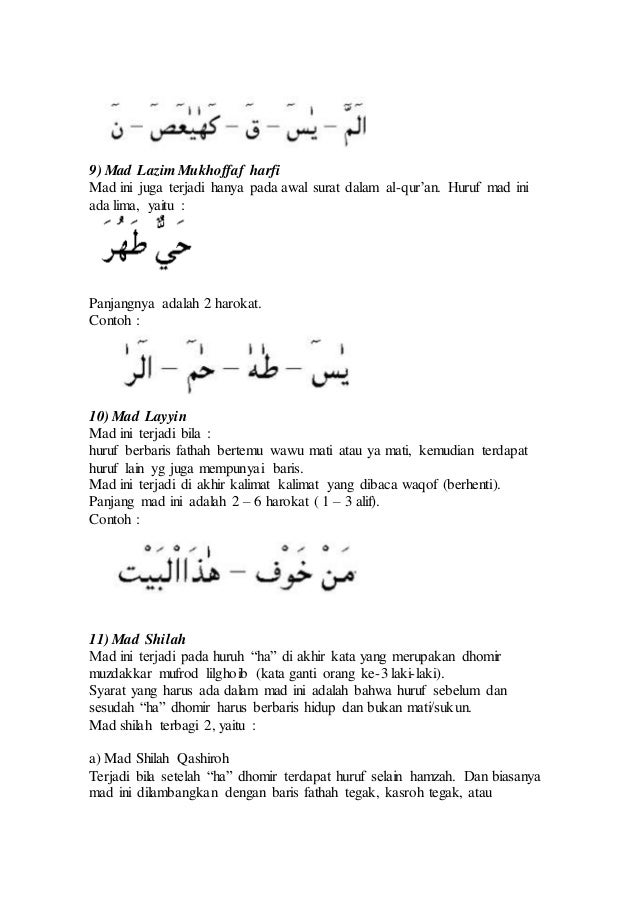 الٓمّٓ – يٰسٓ – قٓ – كٓهٰيٰعٓصٓ – نٓ
9) Mad Lazim Mukhoffaf harfi
Mad ini juga terjadi hanya pada awal surat dalam al-qur’an. Huruf mad ini
ada lima, yaitu :
حَيٌّ طَهُرَ
Panjangnya adalah 2 harokat.
Contoh :
يٰسٓ – طٰهٰ – حٰمٓ – الٓرٰ
10) Mad Layyin
Mad ini terjadi bila :
huruf berbaris fathah bertemu wawu mati atau ya mati, kemudian terdapat
huruf lain yg juga mempunyai baris.
Mad ini terjadi di akhir kalimat kalimat yang dibaca waqof (berhenti).
Panjang mad ini adalah 2 – 6 harokat ( 1 – 3 alif).
Contoh :
مَنْ خَوْفْ – هٰذَاالْبَيْتْ
11) Mad Shilah
Mad ini terjadi pada huruh “ha” di akhir kata yang merupakan dhomir
muzdakkar mufrod lilghoib (kata ganti orang ke-3 laki-laki).
Syarat yang harus ada dalam mad ini adalah bahwa huruf sebelum dan
sesudah “ha” dhomir harus berbaris hidup dan bukan mati/sukun.
Mad shilah terbagi 2, yaitu :
a) Mad Shilah Qashiroh
Terjadi bila setelah “ha” dhomir terdapat huruf selain hamzah. Dan biasanya
mad ini dilambangkan dengan baris fathah tegak, kasroh tegak, atau